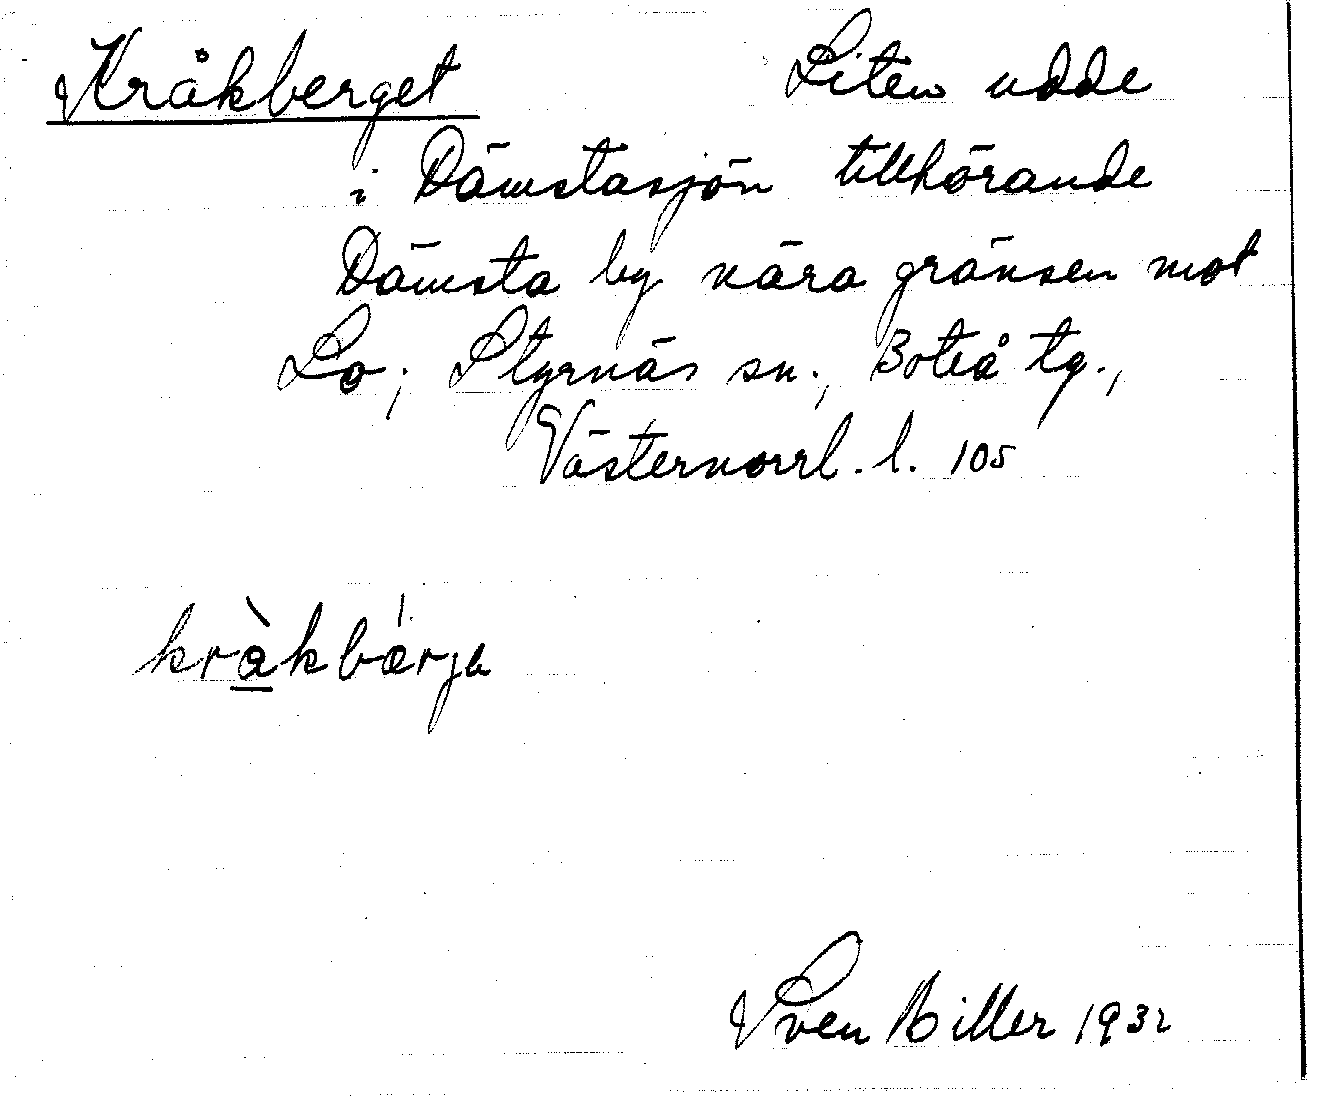 Kråkberget Liten udde
i Dämstasjön tillhörande
Dämsta by nära gränsen mot
Lo; Styrnäs sn., Boteå tg.,
Västernorrl. l. 105
Sven Biller 1932